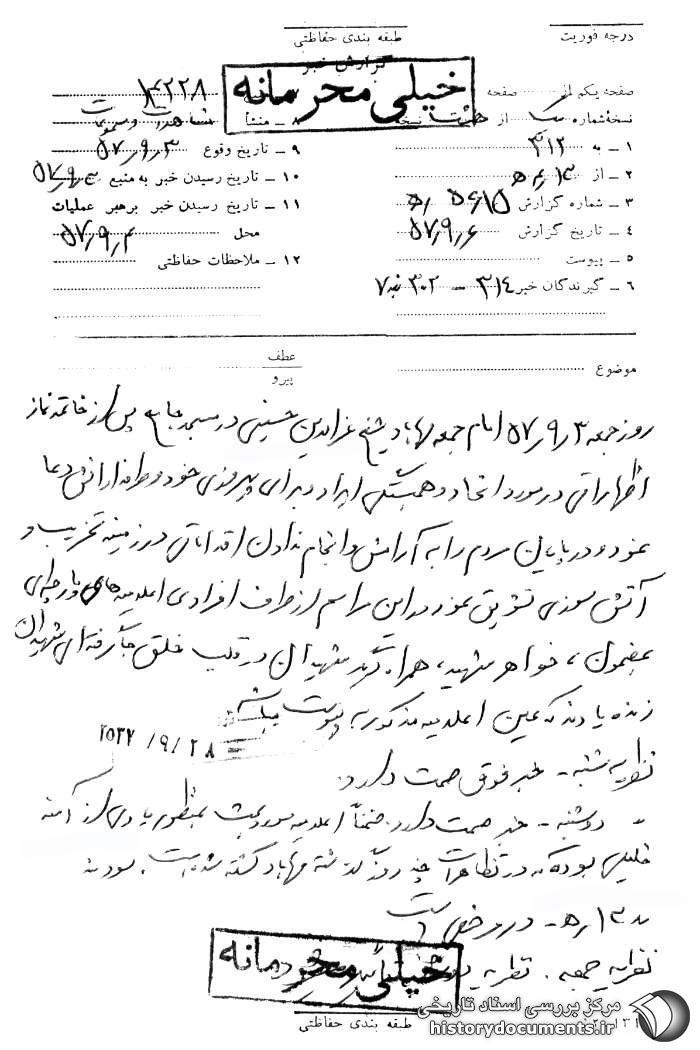 درجه فوریت
طبقه بندی حفاظتی
گزارش خبر
خیلی محرمانه
صفحه یکم از صفحه
نسخهٔ شماره یک از هشت نسخه
۱ – به ۳۱۲
۲ – از ۱۳ه‍
۳ – شماره گزارش
۴ – تاریخ گزارش ۵۷٫۹٫۶
۵ – پیوست
۶ – گیرندگان خبر ۳۱۴ – ۳۰۲
۱۴۲۲۸
۸ – منشأ مشاهدات و مسموعات
۹ – تاریخ وقوع ۵۷٫۹٫۳
۱۰ – تاریخ رسیدن خبر به منبع ۵۷٫۹٫۳
۱۱ – تاریخ رسیدن خبر برهبر عملیات
محل ۵۷٫۹٫۴
۱۲ – ملاحظات حفاظتی
موضوع
عطف
پیرو
روز جمعه ۵۷٫۹٫۳ امام جمعه مهاباد شیخ عزالدین حسینی در مسجد جامع پس از خاتمه نماز
اظهاراتی در مورد اتحاد و همبستگی ایراد و برای پیروزی خود و طرفدارانش دعا
نمود و در پایان مردم را به آرامش و انجام ندادن اقداماتی در زمینه تخریب و
آتش سوزی تشویق نمود در این مراسم از طرف افرادی اعلامیه‌هائی پارچه‌ای
بمضمون، خواهر شهید، همراه گرد شهیدان در قلب خلق جا گرفته‌ای شهیدان
زنده یادند که عین اعلامیه مذکور به پیوست میباشد
۲۵۳۷ /۹/ ۲۸
نظریه شنبه – خبر فوق صحت دارد.
" دوشنبه – خبر صحت دارد. ضمناً اعلامیه مورد بحث بمنظور یادی از آمنه
خلیلی بوده که در تظاهرات چند روز گذشته مهاباد کشته شده است.
" ۱۳ه‍ – در مرخصی است
نظریه جمعه . نظریه
خیلی محرمانه
طبقه بندی حفاظتی
مرکز بررسی اسناد تاریخی
historydocuments.ir